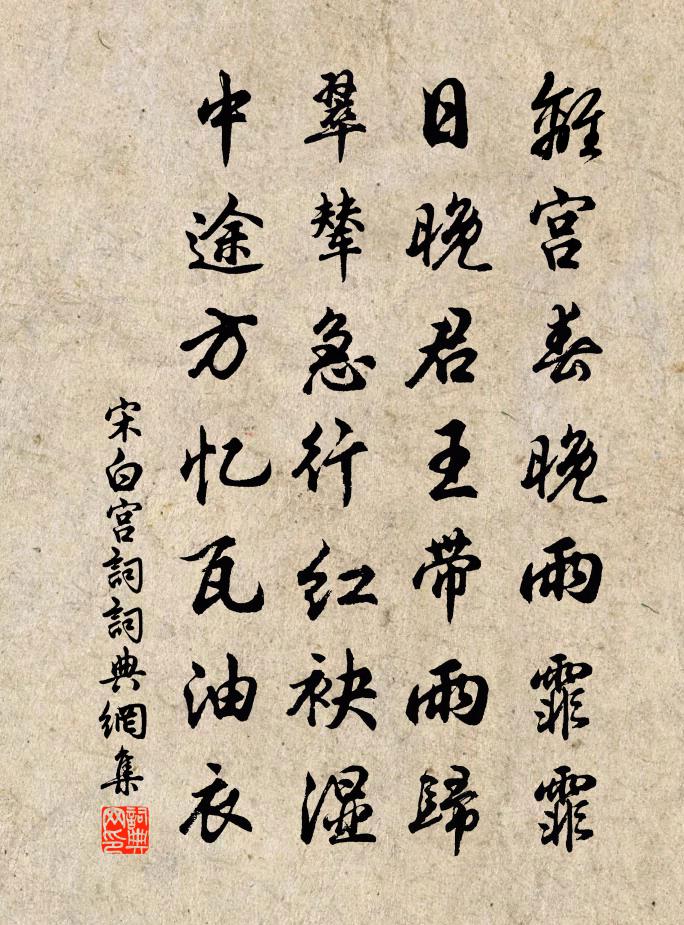 離宫春晚雨霏霏
日晚君王带雨歸
翠輦急行红袂湿
中途方忆瓦油衣
宋白宫詞詞典網集
詞典网印